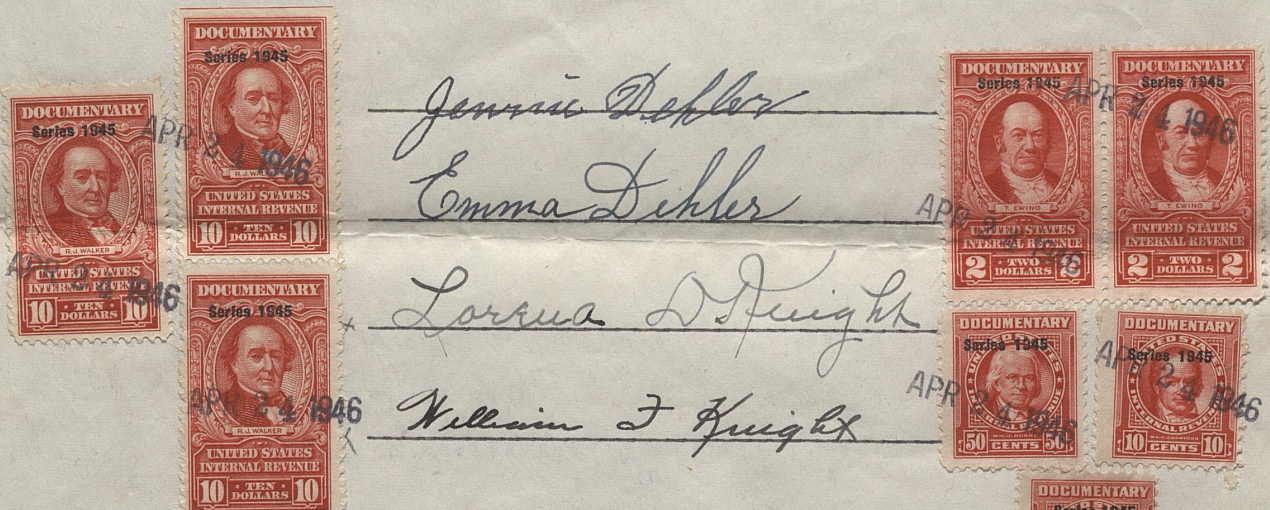 DOCUMENTARY
Series 1945
R.J. WALKER
UNITED STATES
INTERNAL REVENUE
10 TEN DOLLARS 10
APR 24 1946
DOCUMENTARY
Series 1945
R.J. WALKER
UNITED STATES
INTERNAL REVENUE
10 TEN DOLLARS 10
APR 24 1946
DOCUMENTARY
Series 1945
R.J. WALKER
UNITED STATES
INTERNAL REVENUE
10 TEN DOLLARS 10
APR 24 1946
Jennie Dehler
Emma Dehler
Lorena D Knight
William F Knight
DOCUMENTARY
Series 1945
T. EWING
UNITED STATES
INTERNAL REVENUE
2 TWO DOLLARS 2
APR 24 1946
DOCUMENTARY
Series 1945
T. EWING
UNITED STATES
INTERNAL REVENUE
2 TWO DOLLARS 2
APR 24 1946
DOCUMENTARY
Series 1945
50 CENTS 50
APR 24 1946
DOCUMENTARY
Series 1945
10 CENTS 10
APR 24 1946
DOCUMENTARY
Series 1945